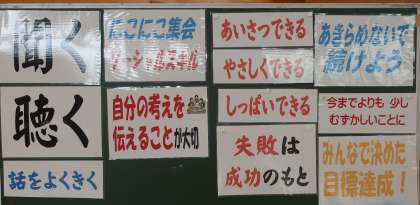 聞く
聴く
話をよくきく
にこにこ集会
ソーシャルスキル
自分の考えを
伝えることが大切
あいさつできる
やさしくできる
しっぱいできる
失敗は
成功のもと
あきらめないで
続けよう
今までよりも 少し
むずかしいことに
みんなで決めた
目標達成！